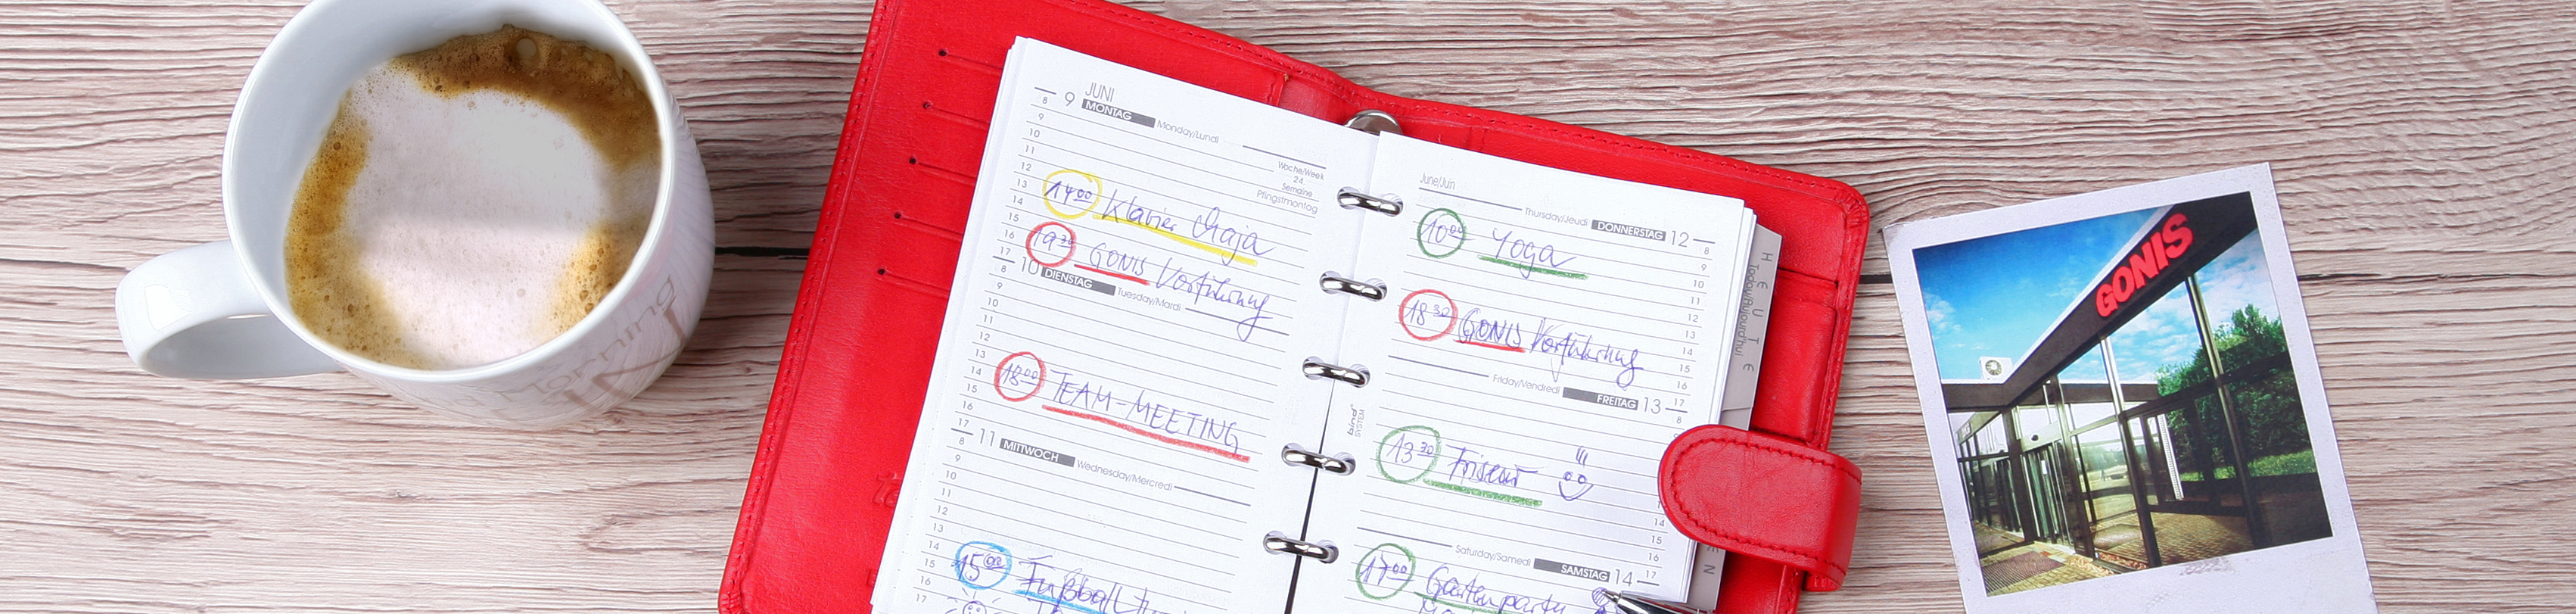 JUNI
9 MONTAG Monday/Lundi
Woche/Week
24
Semaine
Pfingstmontag
8
9
10
11
12
13
14
15
16
17
14 00 Klavier Maja
19 30 GONIS Vorführung
10 DIENSTAG Tuesday/Mardi
8
9
10
11
12
13
14
15
16
17
18 00 TEAM-MEETING
11 MITTWOCH Wednesday/Mercredi
8
9
10
11
12
13
14
15
16
17
15 00 Fußball
June/Juin
Thursday/Jeudi DONNERSTAG 12
8
9
10
11
12
13
14
15
16
17
10 00 Yoga
18 30 GONIS Vorführung
Friday/Vendredi FREITAG 13
8
14
15
16
17
13 30 Friseur
Saturday/Samedi SAMSTAG 14
17 00 Gartenparty
bind
SYSTEM
HEUTE
Today/Aujourd'hui
GONIS